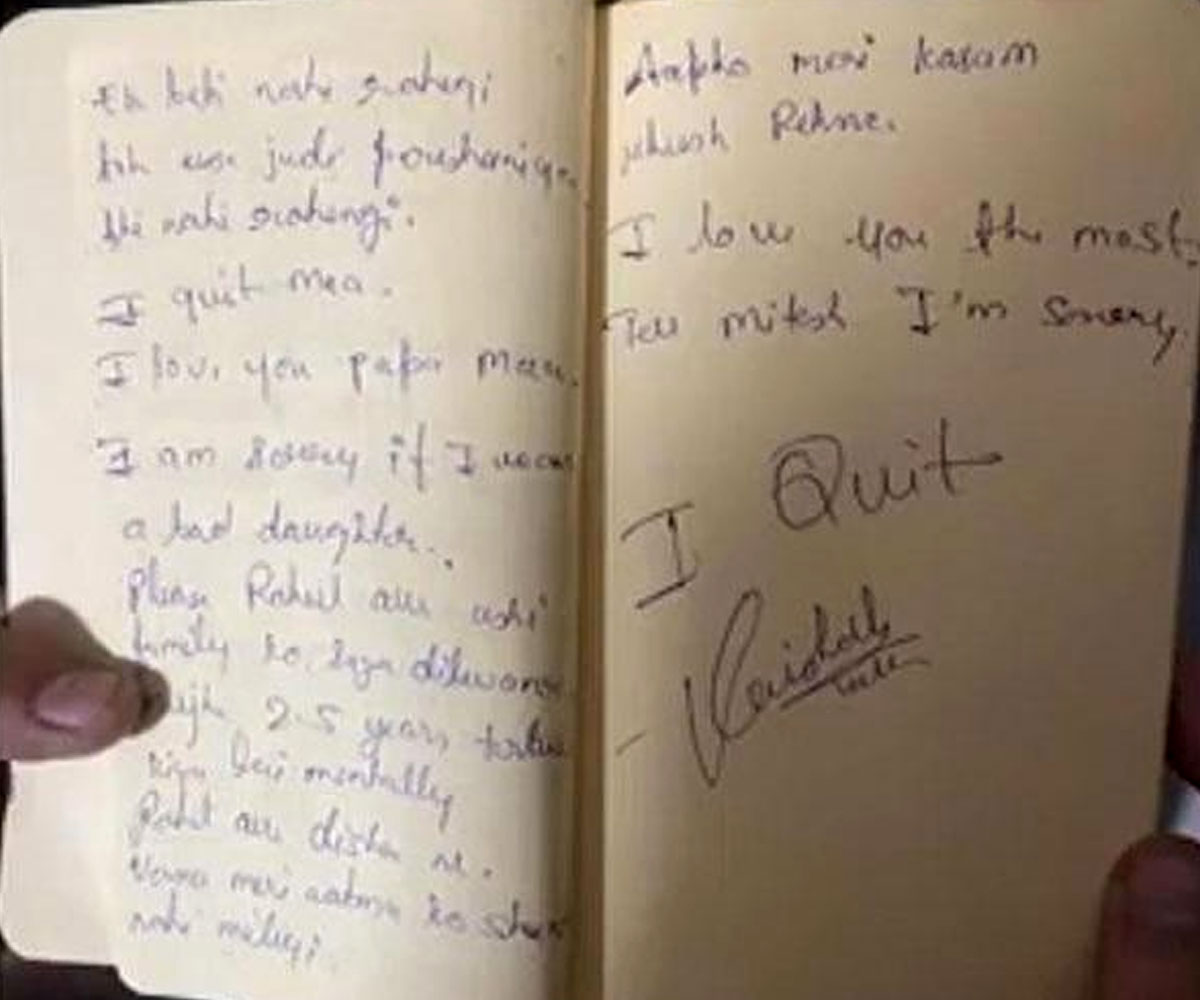 Ek beti nahi rahegi
toh usse jude poushaniya
bhi nahi rahengi.
I quit maa.
I love you papa maa.
I am sorry if I was
a bad daughter.
Please Rahul aur uski
family ko saza dilwana
mujhe 2.5 years torture
kiya hai mentally
Rahul aur disha ne.
Varna meri aatma ko
nahi milegi.
Aapko meri kasam
khush Rehna.
I love you the most.
Tell mitesh I'm sorry.
I Quit
- Vaishali